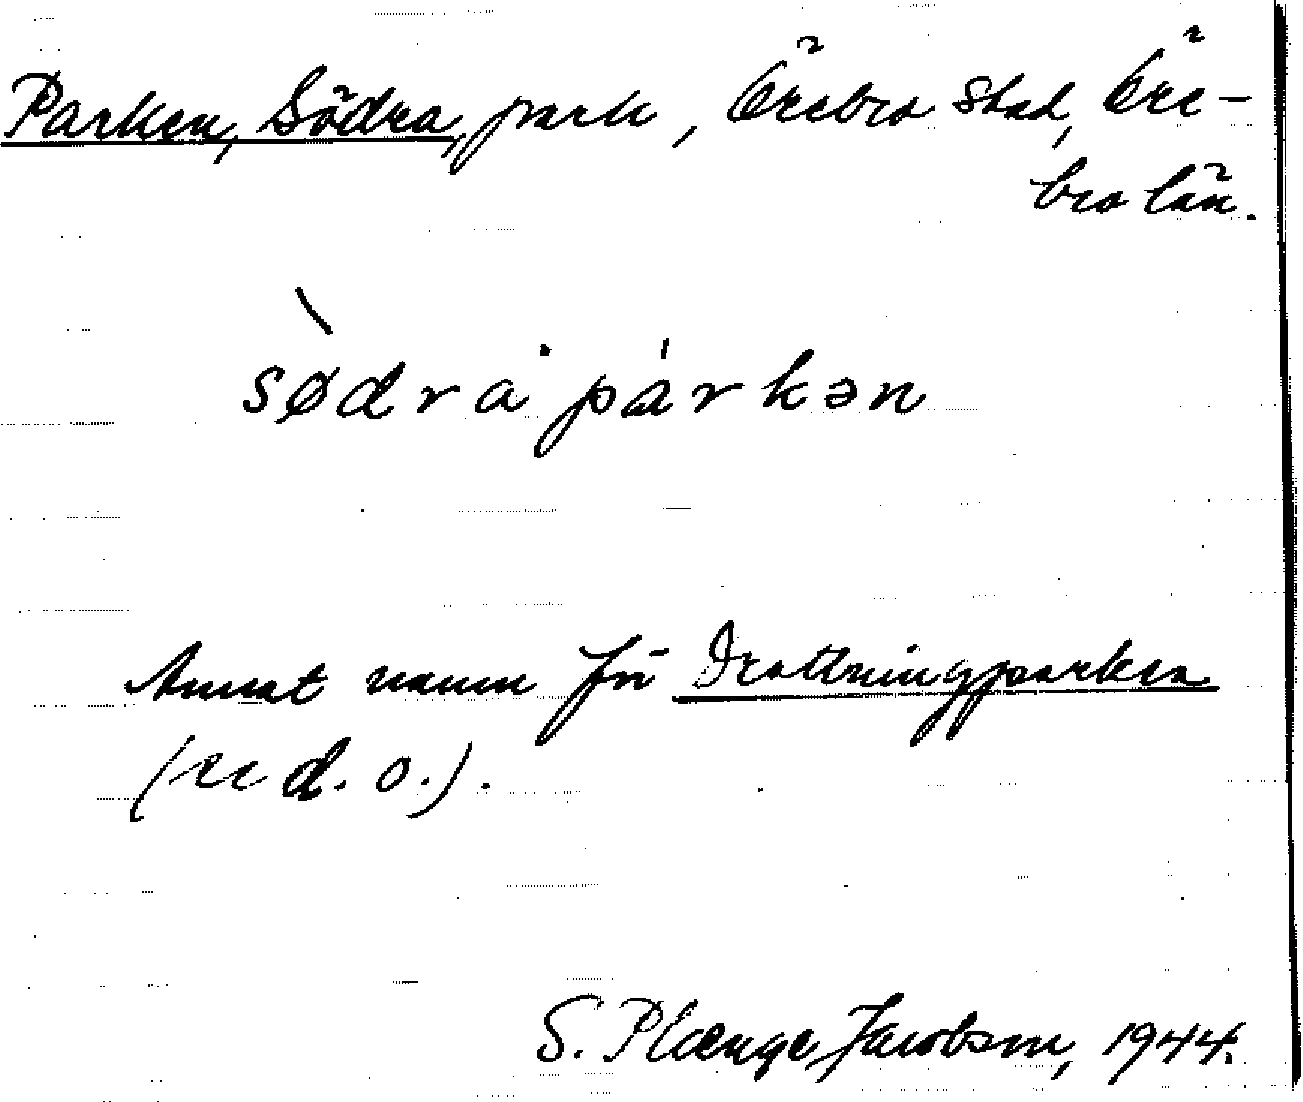 Parken, Södra, park, Örebro stad, Öre-
bro län.
sø̀dra párkən
Annat namn för Drottningparken
(se d. o.).
S. Plænge Jacobson, 1944.